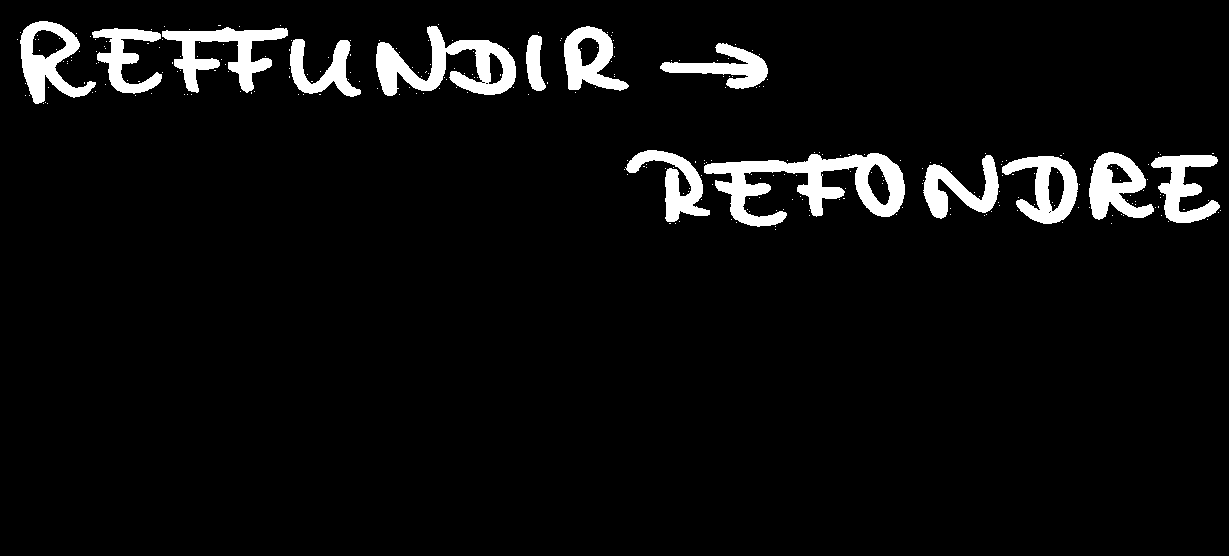 REFFUNDIR →
REFONDRE